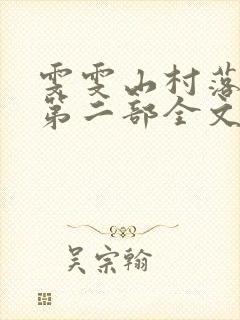 雯雯山村落
第二部全文
吴宗翰